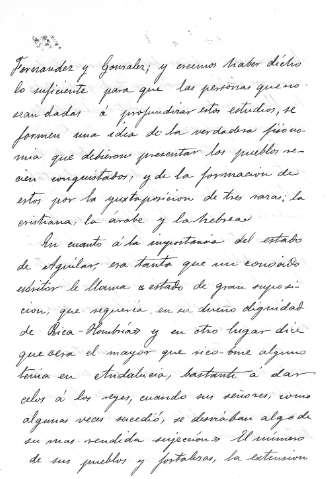 Fernandez y Gonzalez; y creemos haber dicho
lo suficiente para que las personas que no
sean dadas á profundizar estos estudios, se
formen una idea de la verdadera fisono-
mia que debieron presentar los pueblos re-
cien conquistados, y de la formacion de
estos por la yuxtaposicion de tres razas; la
cristiana, la arabe y la hebrea.
En cuanto á la importancia del estado
de Aguilar, era tanta que un conocido
escritor le llama «estado de gran suposi-
cion, que requeria, en su dueño dignidad
de Rica-Hombría» y en otro lugar dice
que «era el mayor que rico-ome alguno
tenia en Andalucia, bastante á dar
celos á los reyes, cuando sus señores, como
algunas veces sucedió, se desviaban algo de
su mas rendida sujeccion.» El número
de sus pueblos y fortalezas, la extension